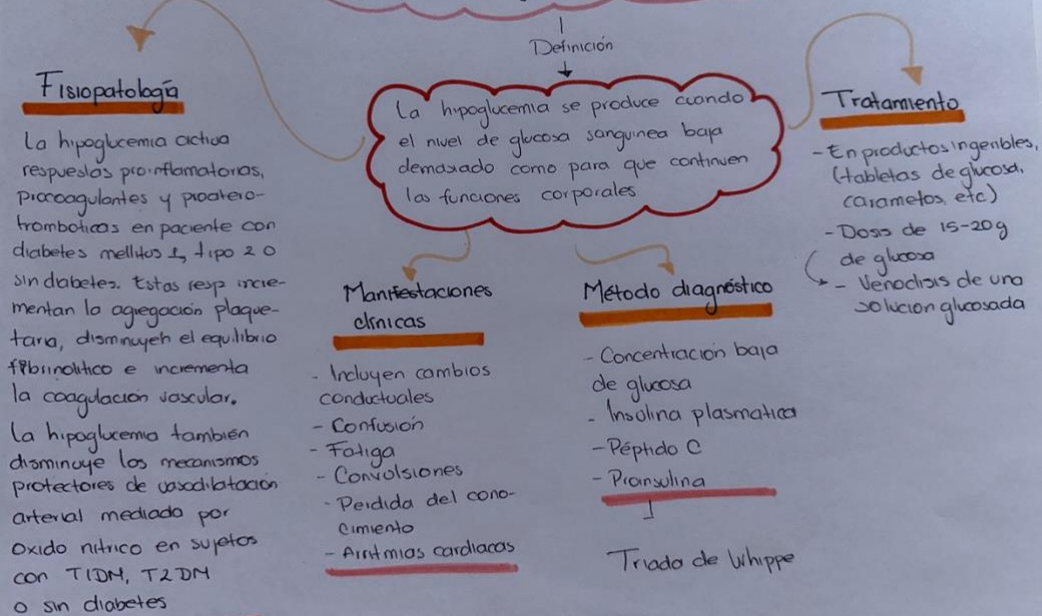 Definición
La hipoglucemia se produce cuando
el nivel de glucosa sanguinea baja
demasiado como para que continuen
las funciones corporales
Fisiopatología
La hipoglucemia activa
respuestas proinflamatorias,
procoagulantes y proatero-
tromboticas en paciente con
diabetes mellitus 1, tipo 2 o
sin diabetes. Estas resp incre-
mentan la agregación plaque-
taria, disminuyen el equilibrio
fibrinolitico e incrementa
la coagulación vascular.
La hipoglucemia también
disminuye los mecanismos
protectores de vasodilatación
arterial mediado por
oxido nitrico en sujetos
con T1DM, T2DM
o sin diabetes
Manifestaciones
clínicas
- Incluyen cambios
conductuales
- Confusión
- Fatiga
- Convulsiones
- Perdida del cono-
cimiento
- Arritmias cardiacas
Método diagnóstico
- Concentración baja
de glucosa
- Insulina plasmatica
- Péptido C
- Proinsulina
Triada de Whippe
Tratamiento
- En productos ingeribles,
(tabletas de glucosa,
caramelos, etc)
- Dosis de 15-20g
de glucosa
- Venoclisis de una
solucion glucosada